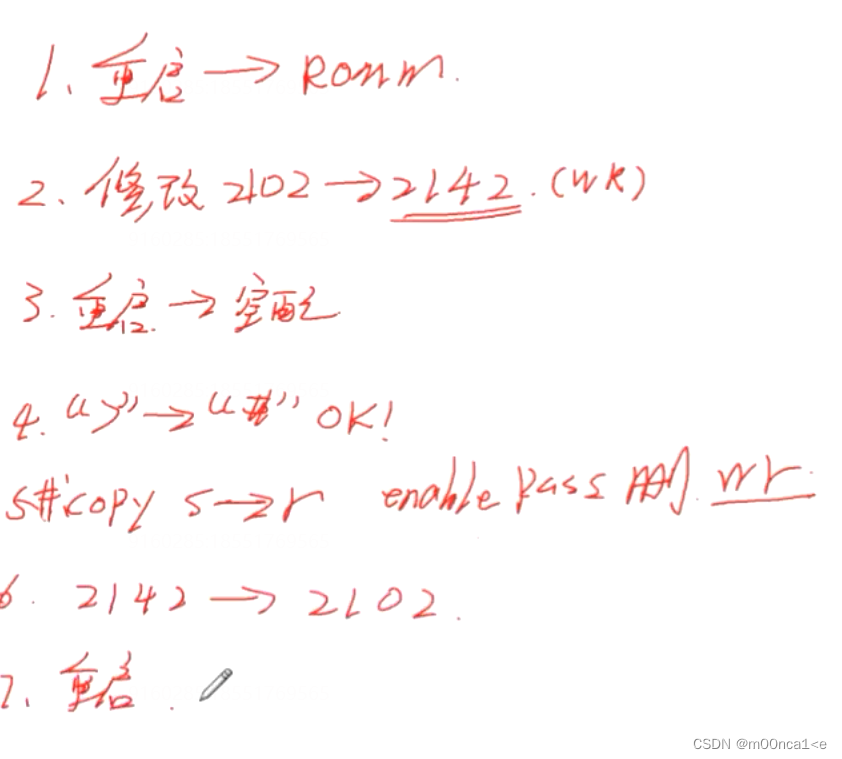 1、重启 → Romm.
2、修改 2102 → 2142. (WR)
3. 重启 → 空配
4. “>” → “#” OK!
5#copy s → r enable pass 删 wr.
6. 2142 → 2102.
7、重启.
CSDN @m00nca1<e